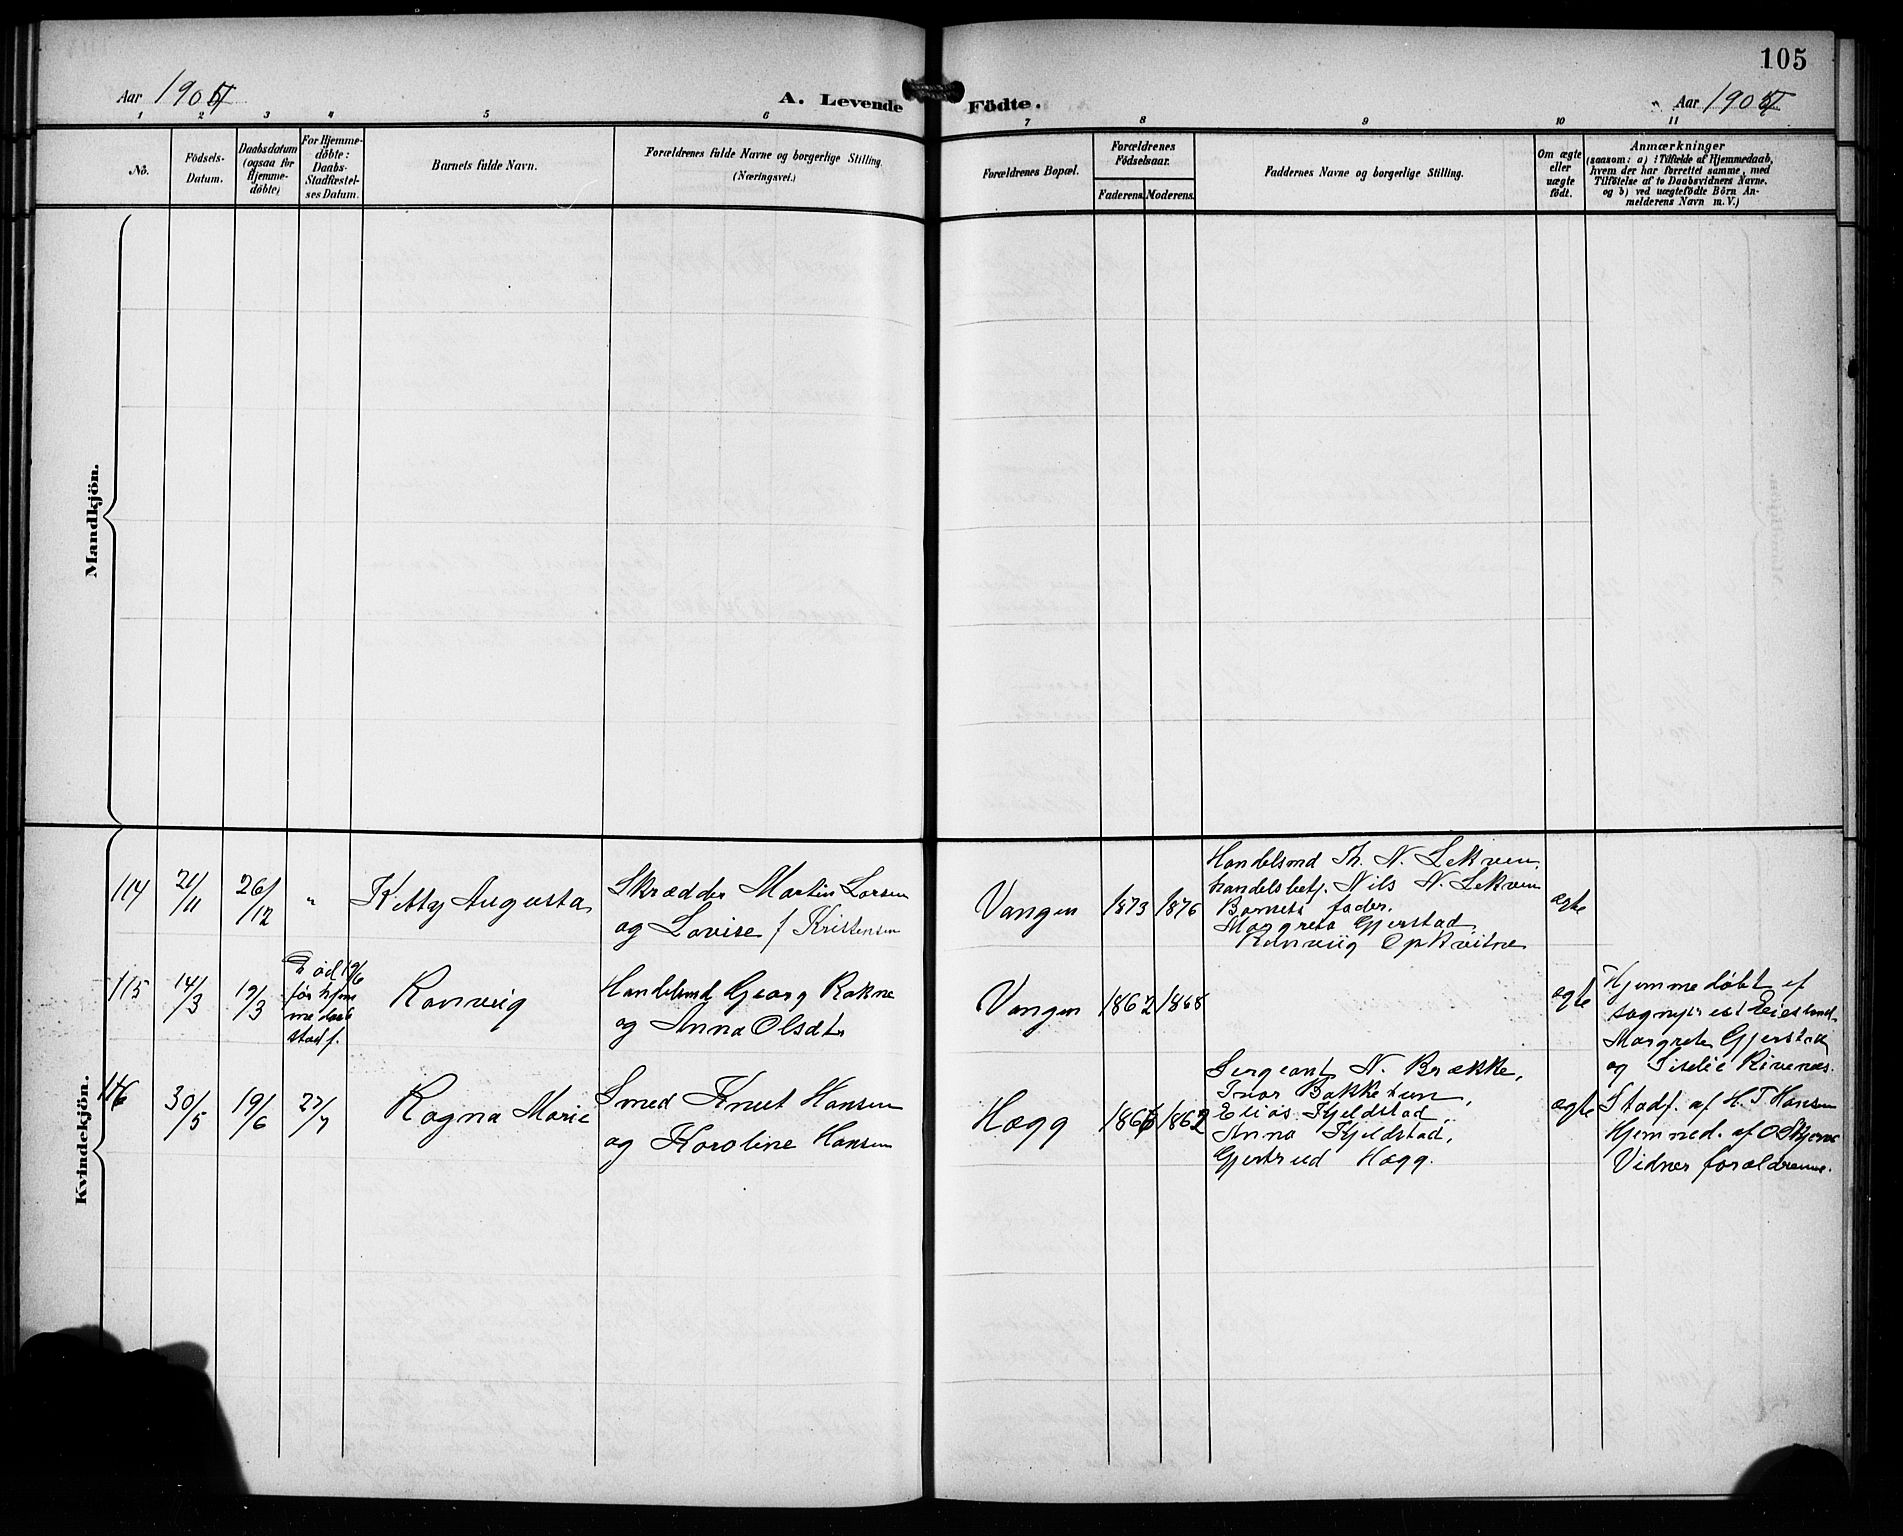 105
Aar 190
A. Levende Födte.
Aar 190
1 2 3 4 5 6 7 8 9 10 11
No.
Födsels-
Datum.
Daabsdatum
(ogsaa for
Hjemme-
döbte)
For Hjemme-
döbte:
Daabs-
Stadfæstel-
ses Datum.
Barnets fulde Navn.
Forældrenes fulde Navne og borgerlige Stilling.
(Næringsvei.)
Forældrenes Bopæl.
Forældrenes
Födselsaar.
Faderens. Moderens.
Faddernes Navne og borgerlige Stilling.
Om ægte
eller
uægte
födt.
Anmærkninger
(saasom: a) i Tilfælde af Hjemmedaab,
hvem der har forrettet samme, med
Tilföielse af to Daabsvidners Navne,
og b) ved uægtefödte Börn An-
melderens Navn m. V.)
Mandkjön.
Kvindekjön.
114
21/11
26/12
"
Ketty Augusta
Skrædder Martin Larsen
og Lovise f Kristensen
Vangen
1873
1876
Handelsmd Th. N. Lekven
handelsbetj. Nils N. Lekven
Barnets fader.
Margreta Gjerstad
Opkvitne
ægte
115
14/3
19/3
Död 19/6
før hjem
me daab
stadf.
Ranveig
Handelsmd Georg Rokne
og Anna Olsdtr
Vangen
1862
1868
ægte
Hjemmedøbt af
Margrete Gjerstad
og Rivenæs.
116
30/5
19/6
27/7
Ragna Marie
Smed Knut Hansen
og Karoline Hansen
Hægg
186
1862
Sergeant N. Brække,
Ivar Bakketun,
Elias Fjeldstad,
Anna Fjeldstad,
Gjertrud Hægg.
ægte
Stadf. af H. T. Hansen
Hjemmed. af O
Vidner forældrene.